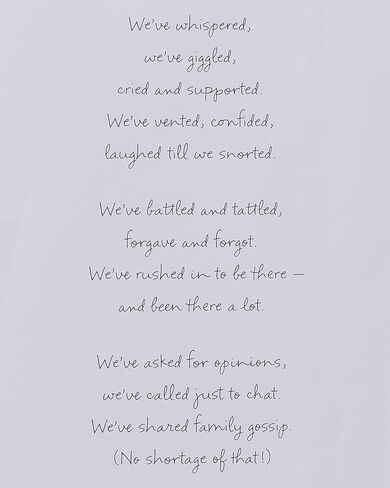 We've whispered,
we've giggled,
cried and supported.
We've vented, confided,
laughed till we snorted.
We've battled and tattled,
forgave and forgot.
We've rushed in to be there –
and been there a lot.
We've asked for opinions,
we've called just to chat.
We've shared family gossip.
(No shortage of that!)